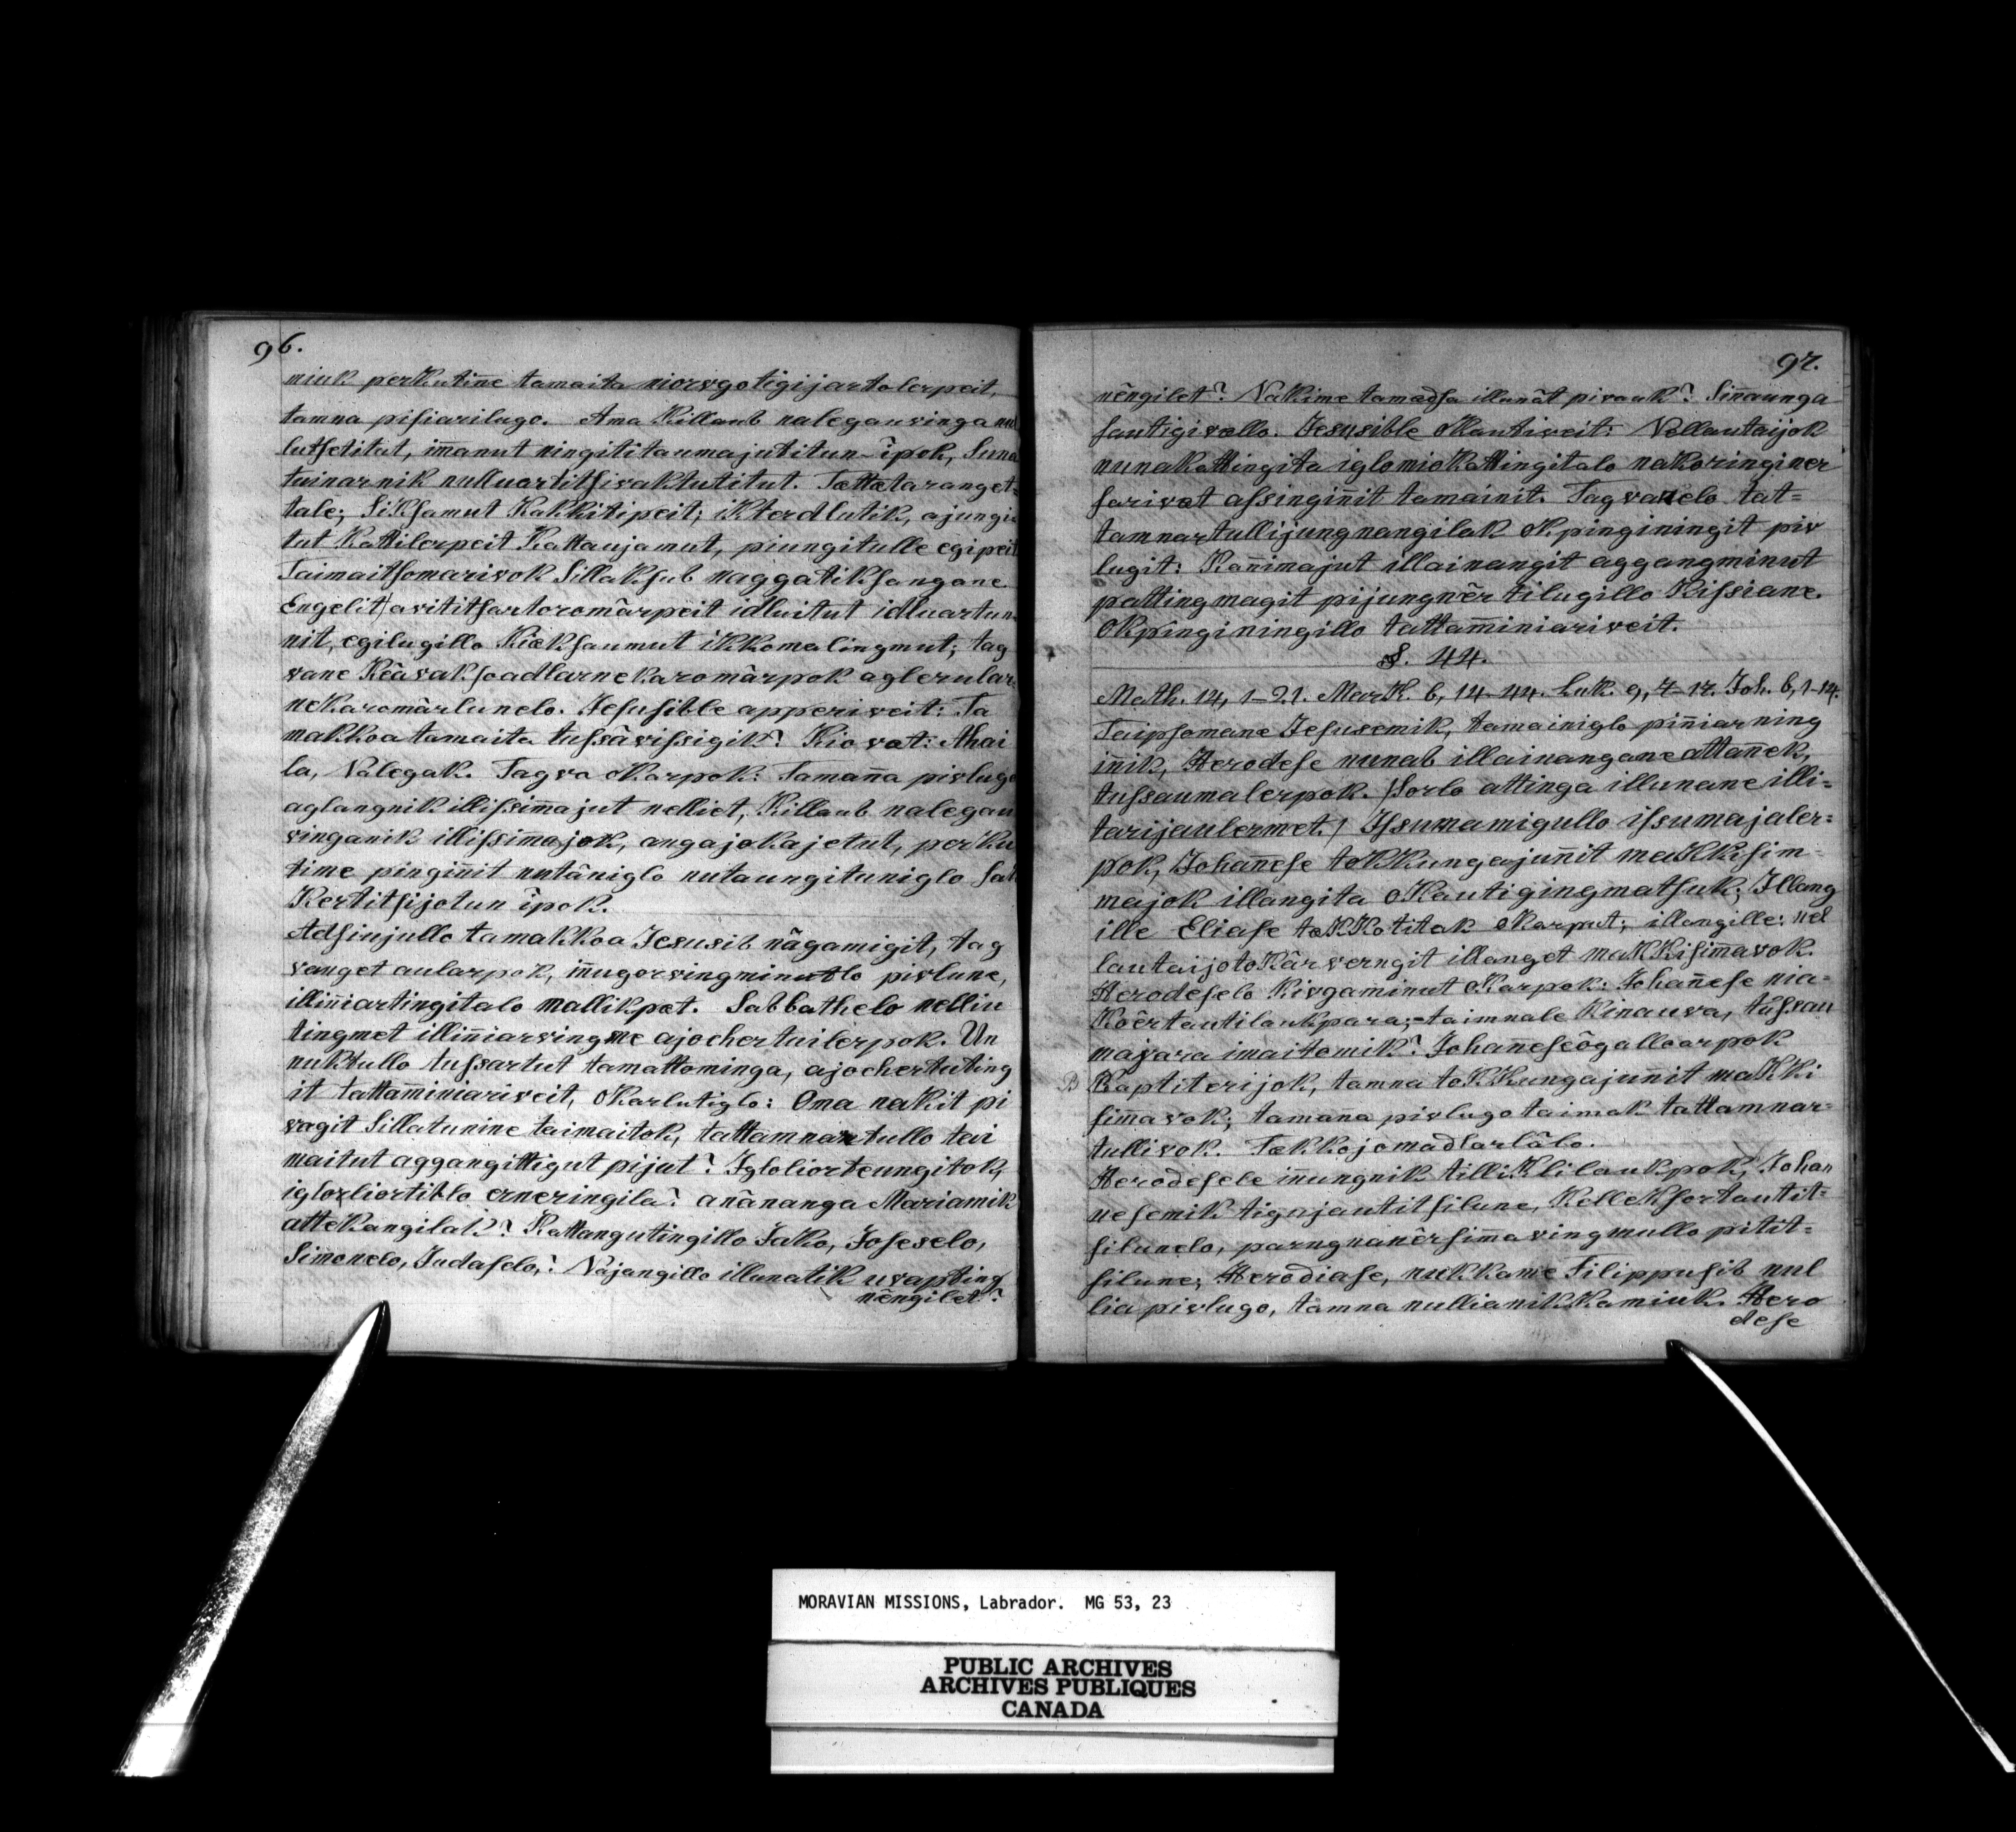 96.
niuk perkutin̄e tamaita niorvgotigijartolerpeit,
tamna pisiarilugo. Ama Killaub nalegauvinga nul
lutsetitat, im̄anut ningititaumajutitun-ipok, Suna
tuinarnik nulluartitsivaktutitut. Tættætaranget=
tale; Siksamut Kakkitipeit; ikterdlutik, ajungi=
tut Kattilerpeit Kattaujamut, piungitulle egipeit
Taimaitsomarivok Sillaksub naggatiksangane.
Engelit avititsartoromârpeit idluitut idluartun
nit, egilugillo Kiæksaumut ikkomalingmut; tag
vane Keâvaksoadlarnekaromârpok aglerular=
nekaromârlunelo. Jesusible apperiveit: Ta
makkoa tamaita tussâvissigik? Kiovat: Ahai
la, Nalegak. Tagva okarpok: Taman̄a pivlugo
aglangnik illissim̄ajut nelliet, Killaub nalegau
vinganik illissimajok, angajokajetut, perku
time pinginit nutâniglo nutaungituniglo sak
Kertitsijotun ipok.
Adsinjullo tamakkoa Jesusib nâgamigit, tag
vanget aularpok, in̄ugorvingminutlo pivlune,
illin̄iartingitalo mallikpæt. Sabbathelo nelliu
tingmet illin̄iarvingme ajochertuilerpok. Un
nuktullo tussartut tamattominga, ajochertuting
it tattam̄iniariveit, okarlutiglo: Oma nakit pi
vagit Sillatunine taimaitok, tattamnartullo tai
maitut aggangittigut pijut? Igloliorteungitok,
iglorliortiblo erneringila? anânanga Mariamik
attekangilak? Kattangutingillo Jako, Joseselo,
Simonelo, Judaselo,? Najangillo illunatik uvapting
nêngilet?
97.
nêngilet? Nakime tamædsa illunât pivauk? Sin̄aunga
sautigivallo. Jesusible okautiveit: Nellautaijok
nunakattingita iglomiokattingitalo nakoringiner
farivæt assingin̄it tamainit. Tagvanelo tat=
tamnartullijungnangilak okpinginingit piv
lugit: Kan̄imajut illainangit aggangminut
pattingmagit pijungnêrtilugillo Kissiane.
Okpinginingillo tattam̄iniariveit.
§. 44.
Math. 14, 1-21. Mark. 6, 14-44. Luk. 9, 7-17. Joh. 6, 1-14.
Taipsomane Jesusemik, tamainiglo pin̄iarning
inik, Herodese nunab illainangane attan̄ek,
tussaumalerpok. /Sorlo attinga illunane illi=
tarijaulermet./ Issumamigullo issumajaler=
pok, Johan̄ese tokkungajun̄it makkisim=
majok illangita okautigingmatsuk; Illang
ille Eliase tækkotitak okarput; illangille: nel
lautaijotokârverngit illanget makkisim̄avok.
Herodeselo Kivgaminut okarpok: Johan̄ese nia=
koêrtautilaukpara;-taimnale Kinauva, tússau
majara imaitomik? Johaneseôgalloarpok
Baptiterijok, tamna tokkungajun̄it makki
sim̄avok; tamana pivlugo taimak tattamnar=
tullivok. Tækkojomadlarlâlo.
Herodesele in̄ungnik tilliklilaukpok, Johan
nesemik tigujautitsilune, Kelleksortautit=
silunelo, parngnanêrsim̄avingmullo pitit=
silune; Herodiase, nukkame Filippusib nul
lia pivlugo, tamna nullianikkamiuk. Hero
dese
MORAVIAN MISSIONS, Labrador. MG 53, 23
PUBLIC ARCHIVES
ARCHIVES PUBLIQUES
CANADA